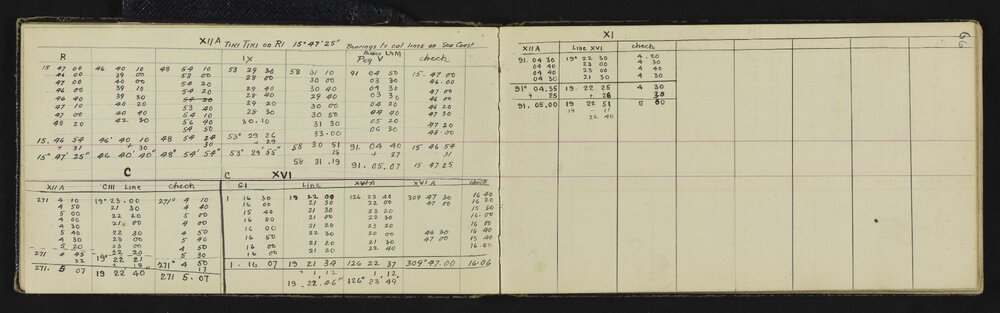 XIIA TIKI TIKI on RI 15° 47' 25" Bearings to cal lines on Sea Coast
R IX Peg V check
15 47 00 46 40 10 48 54 10 53 29 30 58 31 10 91 04 50 15 47 00
46 00 39 00 53 00 28 00 30 00 03 30 46 00
47 00 40 00 54 20
46 00 39 10 54 20 29 40 30 40 47 00
46 40 39 30 54 20 28 40 29 40 03 30 46 00
47 10 40 20 53 40 29 20 30 00 04 20 46 20
47 00 40 40 54 10 28 30 30 50 04 40 47 30
48 20 42 30 56 40 30.10 31 30 05 20 47 20
54 50 33.00 06 30 48 00
15. 46 54 46° 40 10 48 54 24 53° 29 26
+ 31 + 30 + 30 + 29 58 30 51 91 04 40 15 46 54
15° 47' 25" 46 40' 40" 48° 54' 54" 53° 29' 55" + 27 31
58 31 .19 91. 05. 07 15 47 25
C C XVI
XIIA CIII Line check GI Line XVIA XVIA check
271 4 10 19° 23.00 271° 4 10 1 16 30 19 22 00 126 23 40 309 47 30 16 40
4 50 21 30 4 40 16 00 21 30 22 00 47 00 16 20
5 00 22 20 5 00 15 40 21 30 23 20 15 30
4 00 21 00 4 00 16 00 21 00 22 30 16 00
4 30 16 00 21 20 23 20 16 00
5 40 22 30 4 50 16 50 22 30 20 00 46 30 16 40
4 30 23 00 5 40 16 00 21 20 21 30 47 00 15 40
5 20 23 00 4 50 16 00 21 20 22 40 16 00
22 20 5 30
271 4 45 19° 22 21 271° 4 50
22 + 19" 17 1. 16 07 19 21 34 126 22 37 309° 47.00 16.06
271. 5 07 19 22 40" 271 5. 07 + 1, 12 1, 12,
19. 22. 46" 126° 23' 49'
XI 66
XIIA Line XVI check
91. 04 30 19° 22 30 4. 20
04 40 23 00 4 30
04 40 23 00 4 40
04 30 21 30 4 30
91° 04.35 19. 22 25 4 30
+ 25 + 26 30
91. 05.00 19 22 51 5 00
19 11
22 40